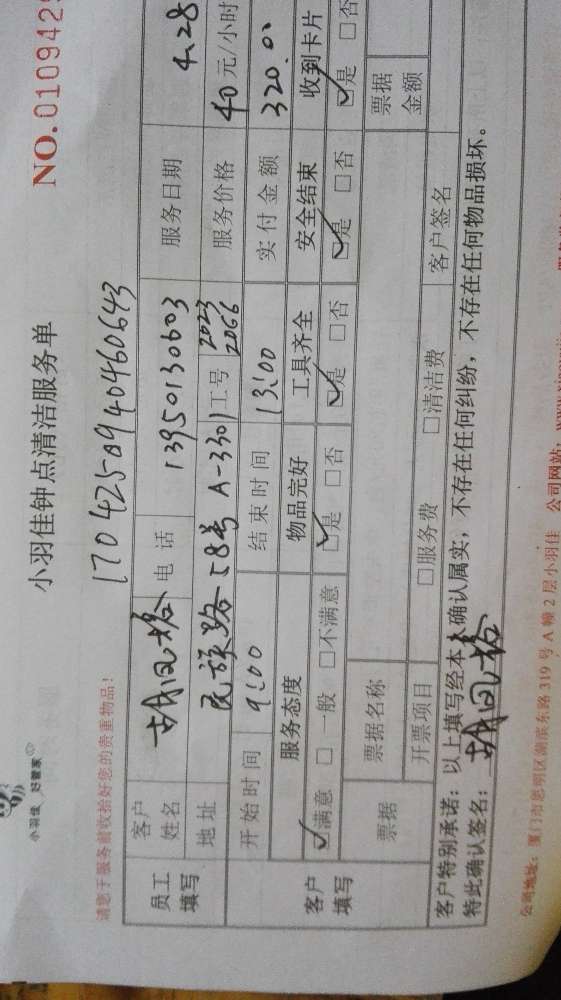 小羽佳 好管家
小羽佳钟点清洁服务单
NO.0109429
请您于服务前收拾好您的贵重物品!
170425094040460643
员工填写
客户姓名 电话 13950130603 服务日期 4.28
地址 民族路58号 A-3301 工号 2023 2066 服务价格 40元/小时
客户填写
开始时间 9:00 结束时间 13:00 实付金额 320.00
服务态度 物品完好 工具齐全 安全结束 收到卡片
☑满意 □一般 □不满意 ☑是 □否 ☑是 □否 ☑是 □否 ☑是 □否
票据 票据名称 票据金额
开票项目 □服务费 □清洁费 客户签名
客户特别承诺:以上填写经本人确认属实,不存在任何纠纷,不存在任何物品损坏。
特此确认签名:
公司地址:厦门市思明区湖滨东路319号A幢2层小羽佳 公司网站: